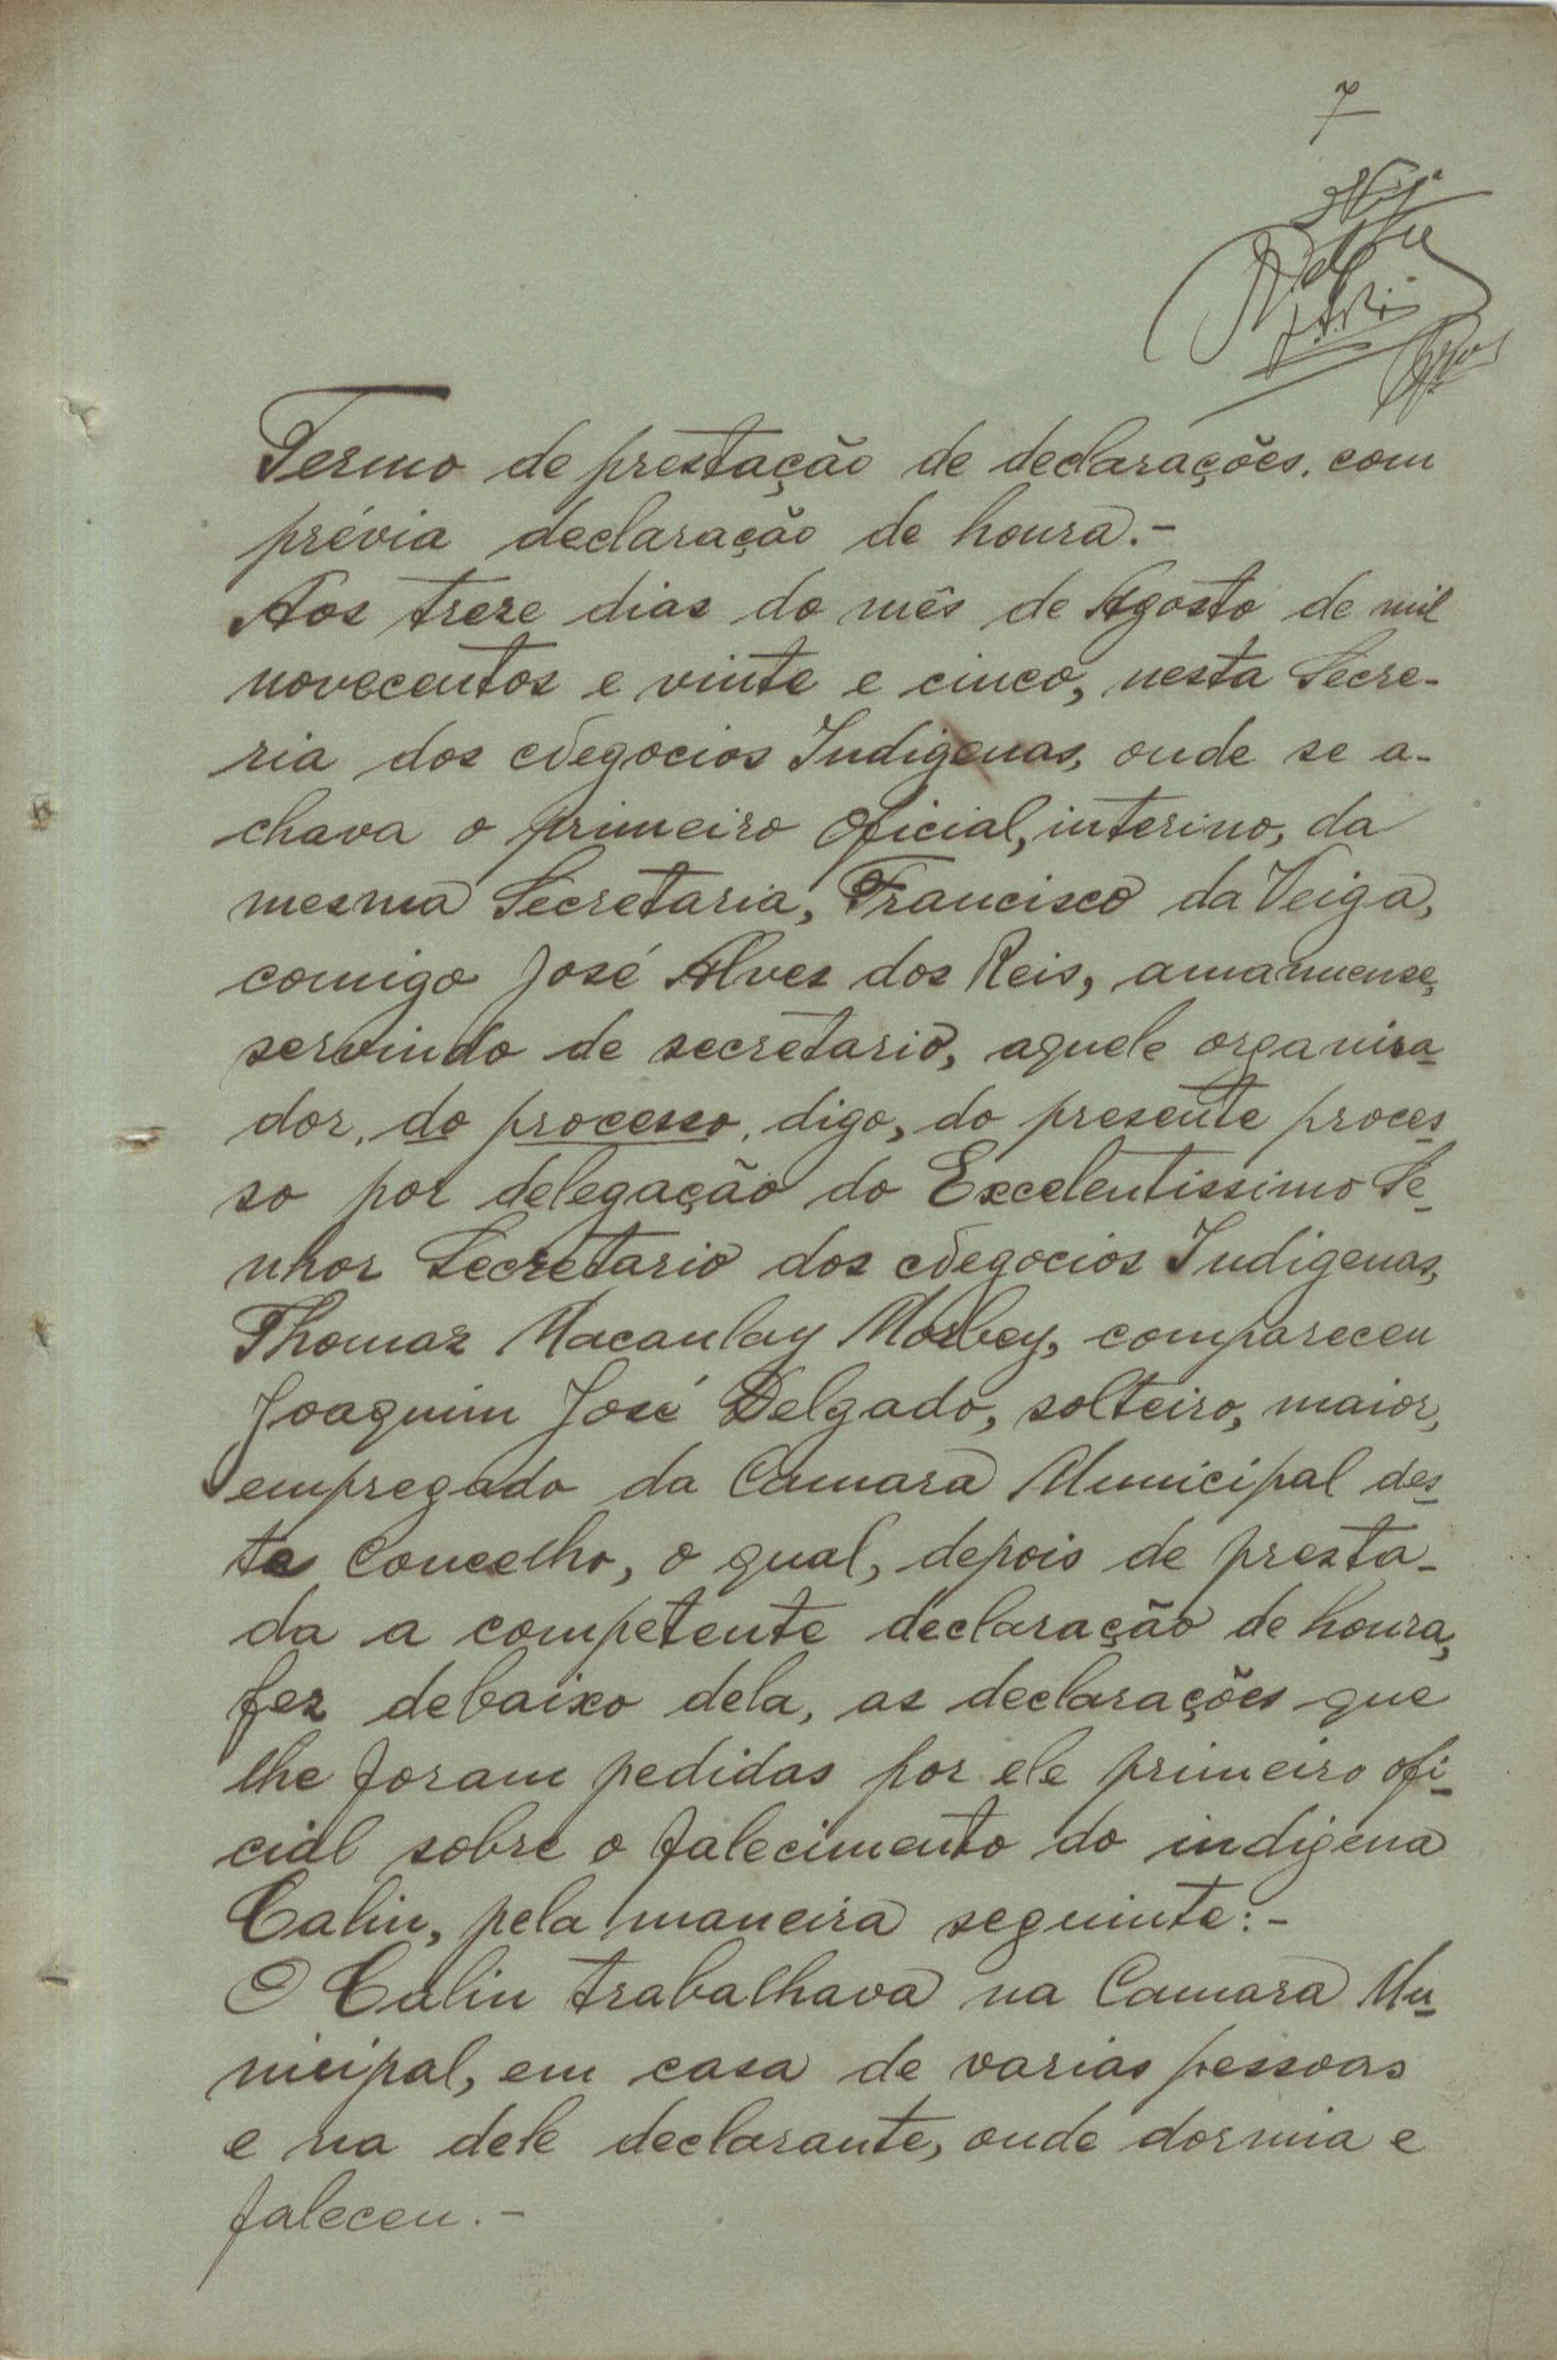 7
Termo de prestação de declarações, com
prévia declaração de honra.-
Aos treze dias do mês de Agosto de mil
novecentos e vinte e cinco, nesta Secre-
ria dos Negocios Indigenas, onde se a-
chava o primeiro oficial, interino, da
mesma Secretaria, Francisco da Veiga,
comigo José Alves dos Reis, amanuense,
servindo de secretario, aquele organisa-
dor, do processo, digo, do presente proces-
so por delegação do Excelentissimo Se-
nhor Secretario dos Negocios Indigenas,
Thomaz Macaulay Morbey, compareceu
Joaquim José Delgado, solteiro, maior,
empregado da Camara Municipal des-
te Concelho, o qual, depois de presta-
da a competente declaração de honra,
fez debaixo dela, as declarações que
lhe foram pedidas por ele primeiro ofi-
cial sobre o falecimento do indigena
Calin, pela maneira seguinte:-
O Calin trabalhava na Camara Mu-
nicipal, em casa de varias pessoas
e na dele declarante, onde dormia e
faleceu.-